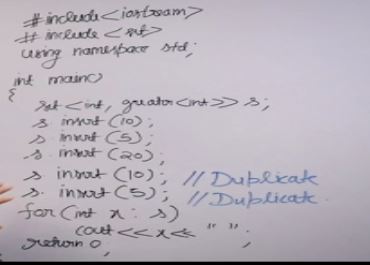 #include<iostream>
#include<set>
using namespace std;
int main()
{
set<int, greater<int>> s;
s. insert (10);
s. insert (5);
s. insert (20);
s. insert (10); // Duplicate
s. insert (5); // Duplicate.
for (int x : s)
cout << x << " ";
return 0;